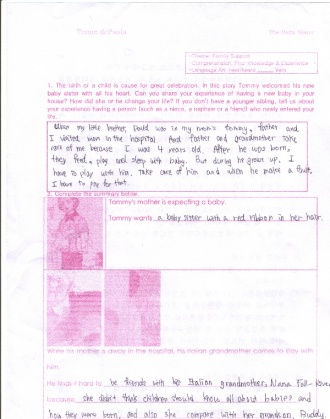 Tomie dePaola
The Baby Sister
-Theme: Family Support
-Comprehension: Prior Knowledge & Experience
-Language Art:
1. The birth of a child is cause for great celebration. In this story Tommy welcomed his new
baby sister with all his heart. Can you share your experience of having a new baby in your
house? How did she or he change your life? If you don't have a younger sibling, tell us about
your experience having a person (such as a niece, a nephew or a friend) who newly entered your
life.
When my little brother, David was in my mom's tommy, father and
I waited mom in the hospital. And father and grandmother take
care of me because I was 4 years old. After he was born,
they feed, play and sleep with baby. But during he grows up, I
have to play with him, take care of him and when he make a fault,
I have to pay for that.
2. Complete the summary below.
Tommy's mother is expecting a baby.
Tommy wants a baby sister with a red ribbon in her hair.
While his mother is away in the hospital, his Italian grandmother comes to stay with
him.
He finds it hard to be friends with his Italian grandmother, Nana Fall-
because she didn't think children should know all about babies and
how they were born, and also she compare with her grandson, Buddy.